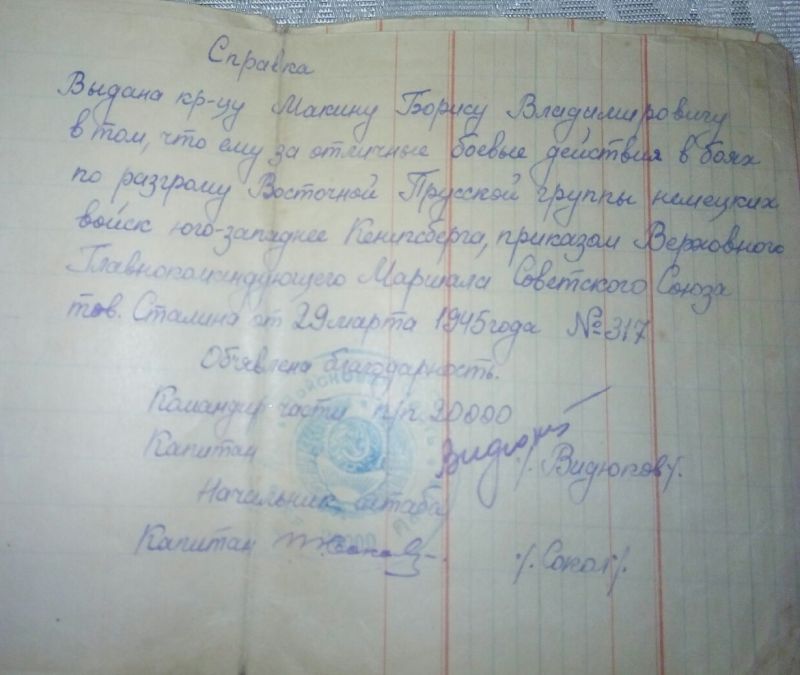 Справка
Выдана кр-цу Макину Борису Владимировичу
в том, что ему за отличные боевые действия в боях
по разгрому Восточной Прусской группы немецких
войск юго-западнее Кенигсберга, приказом Верховного
Главнокомандующего Маршала Советского Союза
тов. Сталина от 29 марта 1945 года №317
Объявлена благодарность.
Командир части п/п. 20000
Капитан /. Видюков /.
Начальник штаба
Капитан /. Сокол /.